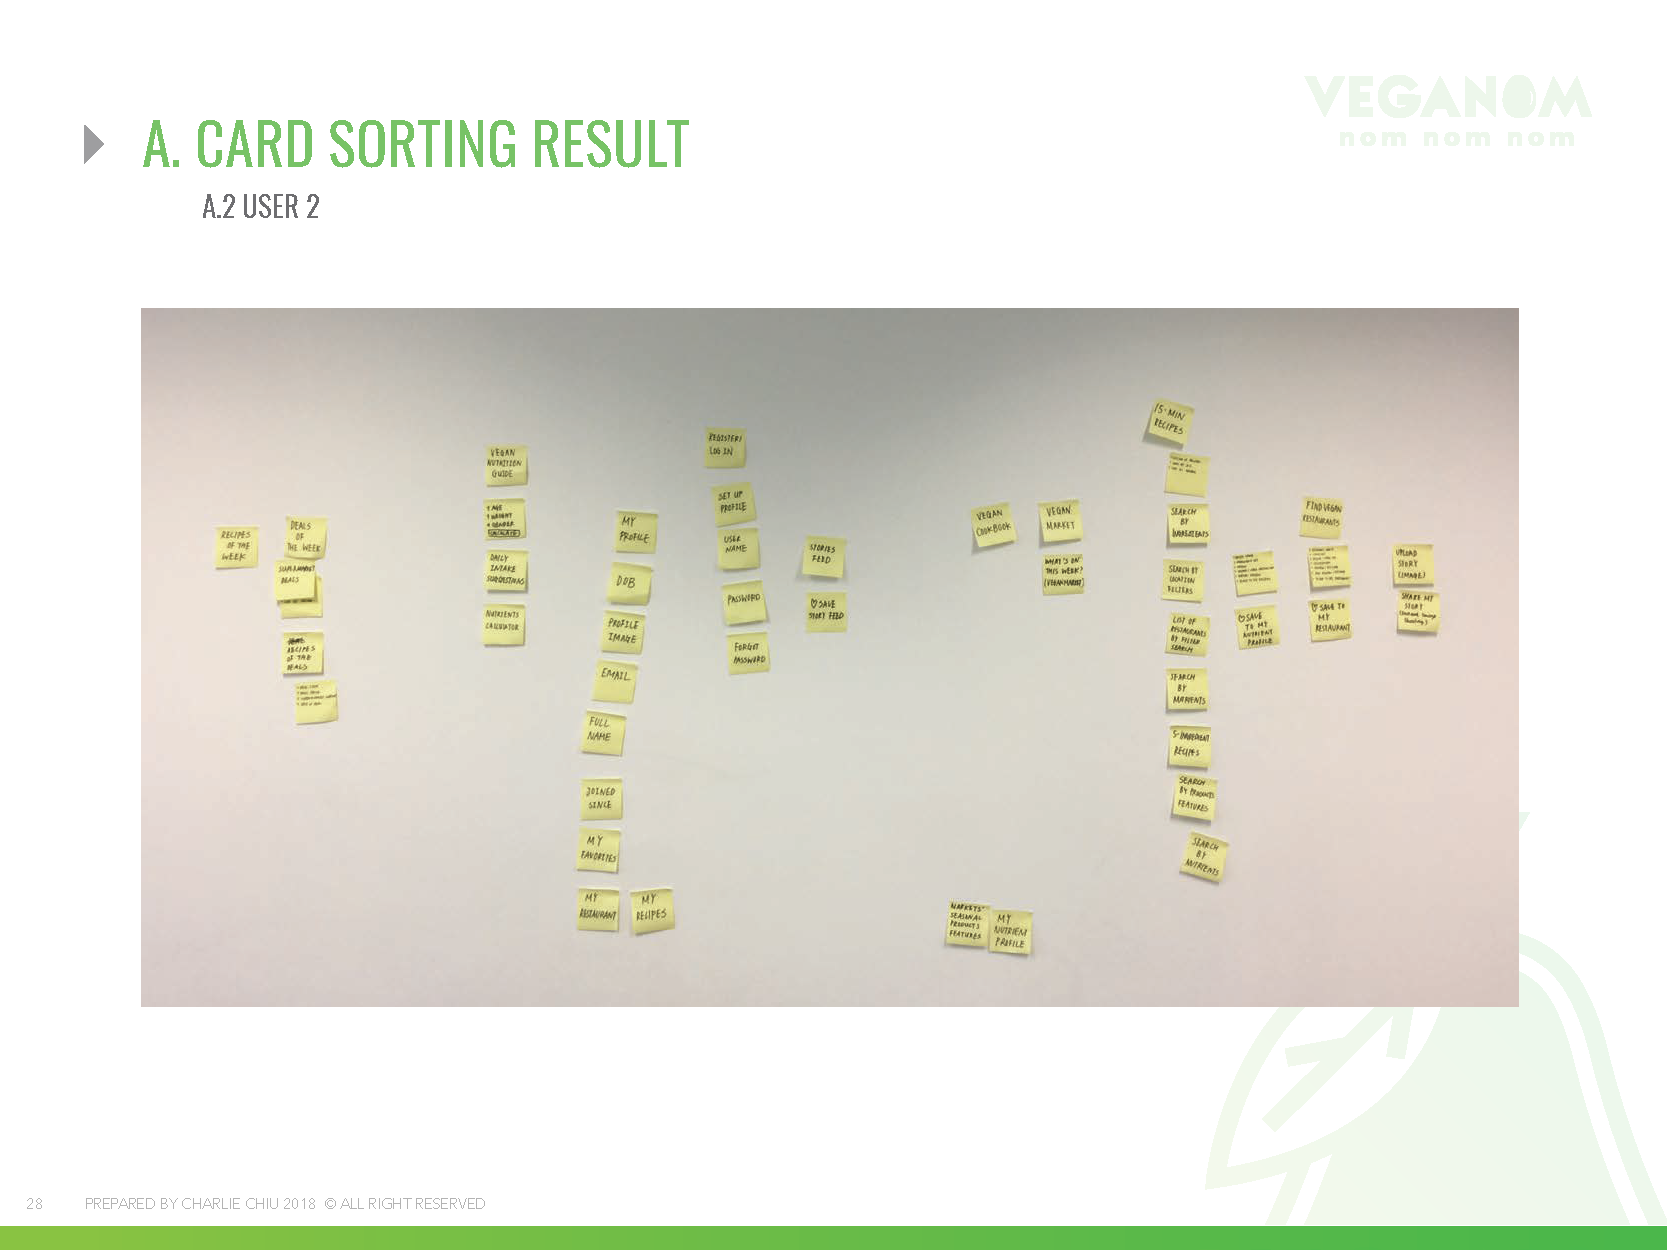 VEGANOM
nom nom nom
A. CARD SORTING RESULT
A.2 USER 2
RECIPES
OF THE
WEEK
DEALS
OF
THE WEEK
SUPERMARKET
DEALS
RECIPES
OF THE
DEALS
VEGAN
NUTRITION
GUIDE
AGE
WEIGHT
GENDER
CALCULATE
DAILY
INTAKE
SUGGESTIONS
NUTRIENTS
CALCULATOR
MY
PROFILE
DOB
PROFILE
IMAGE
EMAIL
FULL
NAME
JOINED
SINCE
MY
FAVORITES
MY
RESTAURANT
MY
RECIPES
REGISTER/
LOG IN
SET UP
PROFILE
USER
NAME
PASSWORD
FORGOT
PASSWORD
STORIES
FEED
♡ SAVE
STORY FEED
VEGAN
COOKBOOK
VEGAN
MARKET
WHAT'S ON
THIS WEEK?
(VEGAN MARKET)
MARKETS'
SEASONAL
PRODUCTS
FEATURES
MY
NUTRIENT
PROFILE
15-MIN
RECIPES
SEARCH
BY
INGREDIENTS
SEARCH BY
LOCATION
FILTERS
LIST OF
RESTAURANTS
BY FILTER
SEARCH
SEARCH
BY
NUTRIENTS
5-INGREDIENT
RECIPES
SEARCH
BY PRODUCTS
FEATURES
SEARCH
BY
NUTRIENTS
♡ SAVE
TO MY
NUTRIENT
PROFILE
FIND VEGAN
RESTAURANTS
♡ SAVE TO
MY
RESTAURANT
UPLOAD
STORY
(IMAGE)
SHARE MY
STORY
28
PREPARED BY CHARLIE CHIU 2018 © ALL RIGHT RESERVED